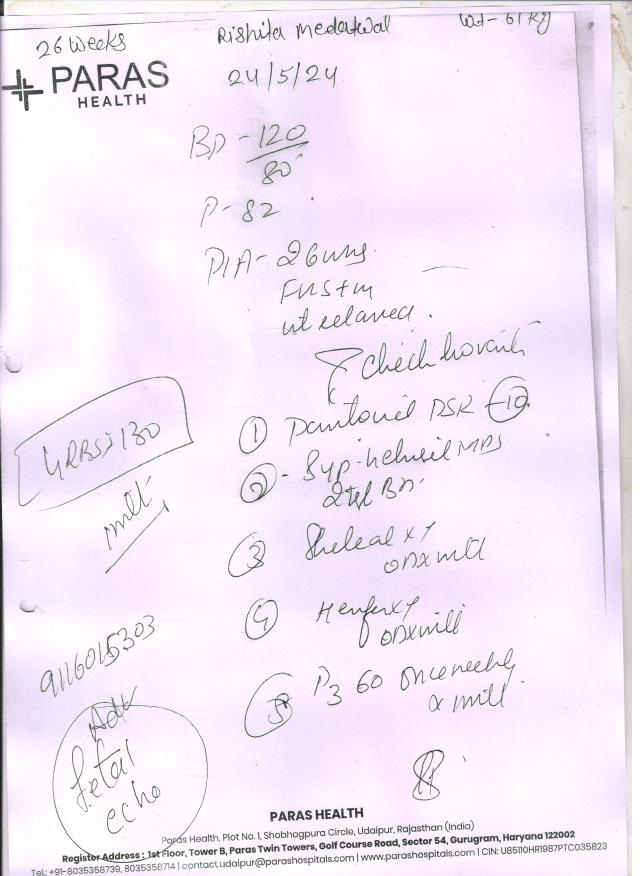 26 Weeks
Rishita Medatwal
Wt - 61 Kg
PARAS
HEALTH
24/5/24
BP - 120
80
P - 82
P/A - 26 wks
FHS + m
ut relaxed.
GRBS > 130
① DSR - 10
② - Syp. MPS
2tsf BD
③ Shelcal XT
OD x
④ XT
OD x
⑤ D3 60 Once weekly
x
9116015303
Adv
fetal
echo
PARAS HEALTH
Paras Health, Plot No. 1, Shobhagpura Circle, Udaipur, Rajasthan (India)
Register Address : 1st Floor, Tower B, Paras Twin Towers, Golf Course Road, Sector 54, Gurugram, Haryana 122002
Tel.: +91-8035358739, 8035358714 | contact.udaipur@parashospitals.com | www.parashospitals.com | CIN: U85110HR1987PTC035823